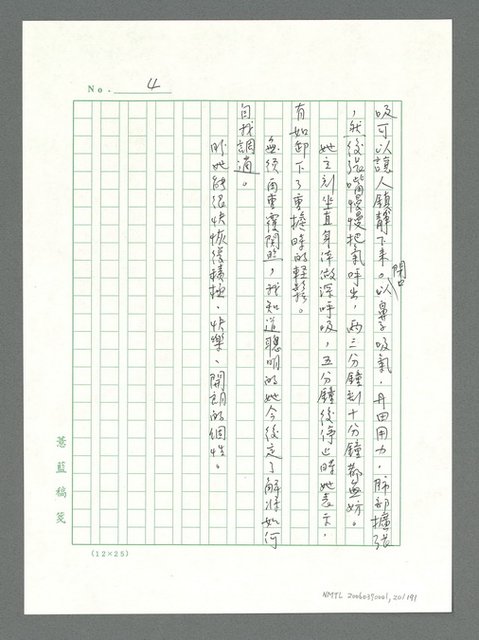 No. 4
吸可以讓人鎮靜下來。以鼻子吸氣,丹田用力,肺部擴張
開口
,然後張嘴慢慢把氣呼出,兩三分鐘到十分鐘都無妨。
她立刻坐直身子做深呼吸,五分鐘後停止時她表示,
有如卸下了重擔時的輕鬆。
無須再重覆關照,我知道聰明的她今後定了解將如何
自我調適。
盼她能很快恢復積極、快樂、開朗的個性。
蒼藍稿箋
(12×25)
NMTL 20060390001, 20/191